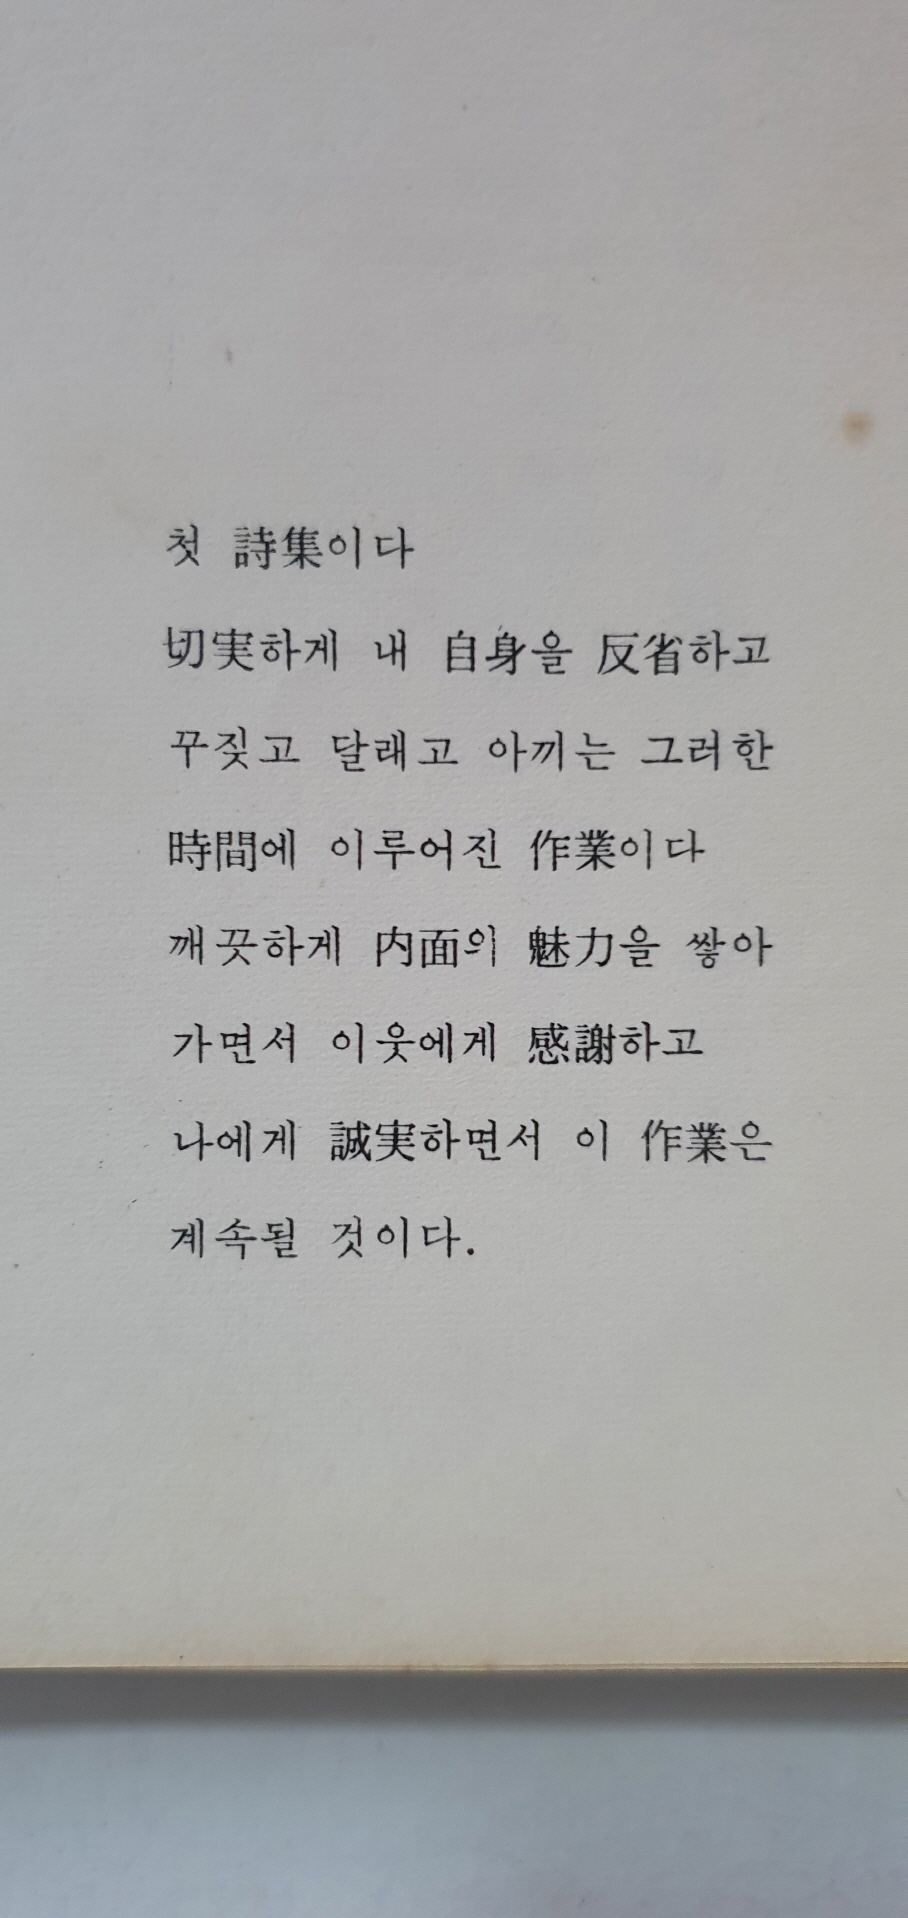 첫 詩集이다
切実하게 내 自身을 反省하고
꾸짖고 달래고 아끼는 그러한
時間에 이루어진 作業이다
깨끗하게 内面의 魅力을 쌓아
가면서 이웃에게 感謝하고
나에게 誠実하면서 이 作業은
계속될 것이다.